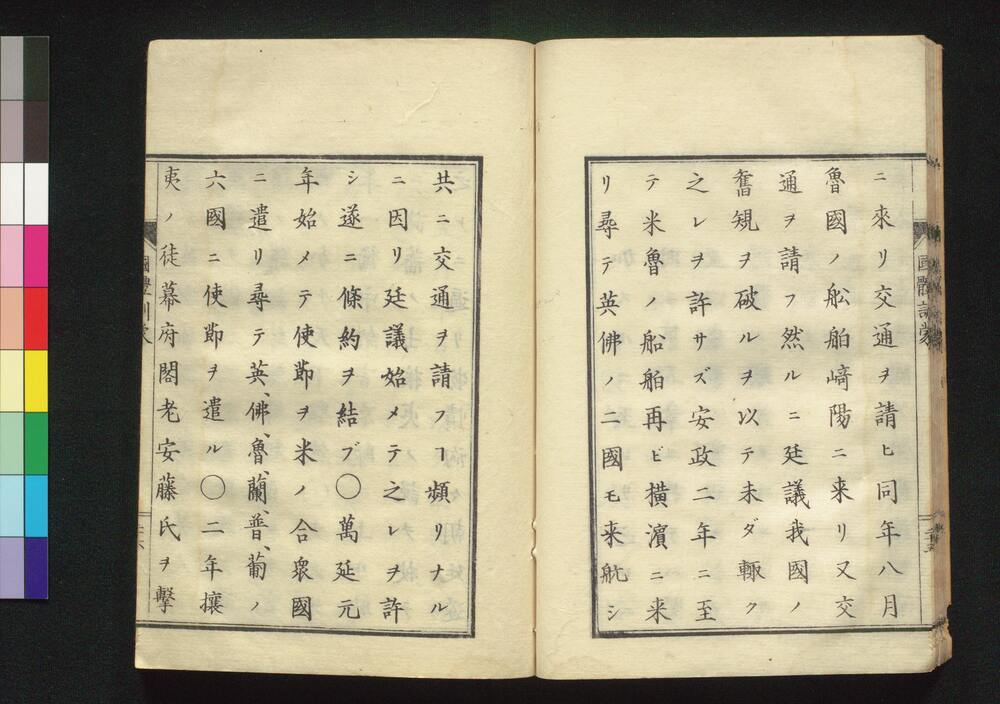 ニ來リ交通ヲ請ヒ同年八月
魯國ノ舩舶﨑陽ニ来リ又交
通ヲ請フ然ルニ廷議我國ノ
舊規ヲ破ルヲ以テ未ダ輙ク
之レヲ許サズ安政二年ニ至
テ米魯ノ船舶再ビ橫濵ニ来
リ尋テ英佛ノ二國モ来航シ
國體訓蒙
共ニ交通ヲ請フヿ頻リナル
ニ因リ廷議始メテ之レヲ許
シ遂ニ條約ヲ結ブ〇萬延元
年始メテ使節ヲ米ノ合衆國
ニ遣リ尋テ英、佛、魯、蘭、普、葡ノ
六國ニ使節ヲ遣ル〇二年攘
夷ノ徒幕府閣老安藤氏ヲ擊
國體訓蒙